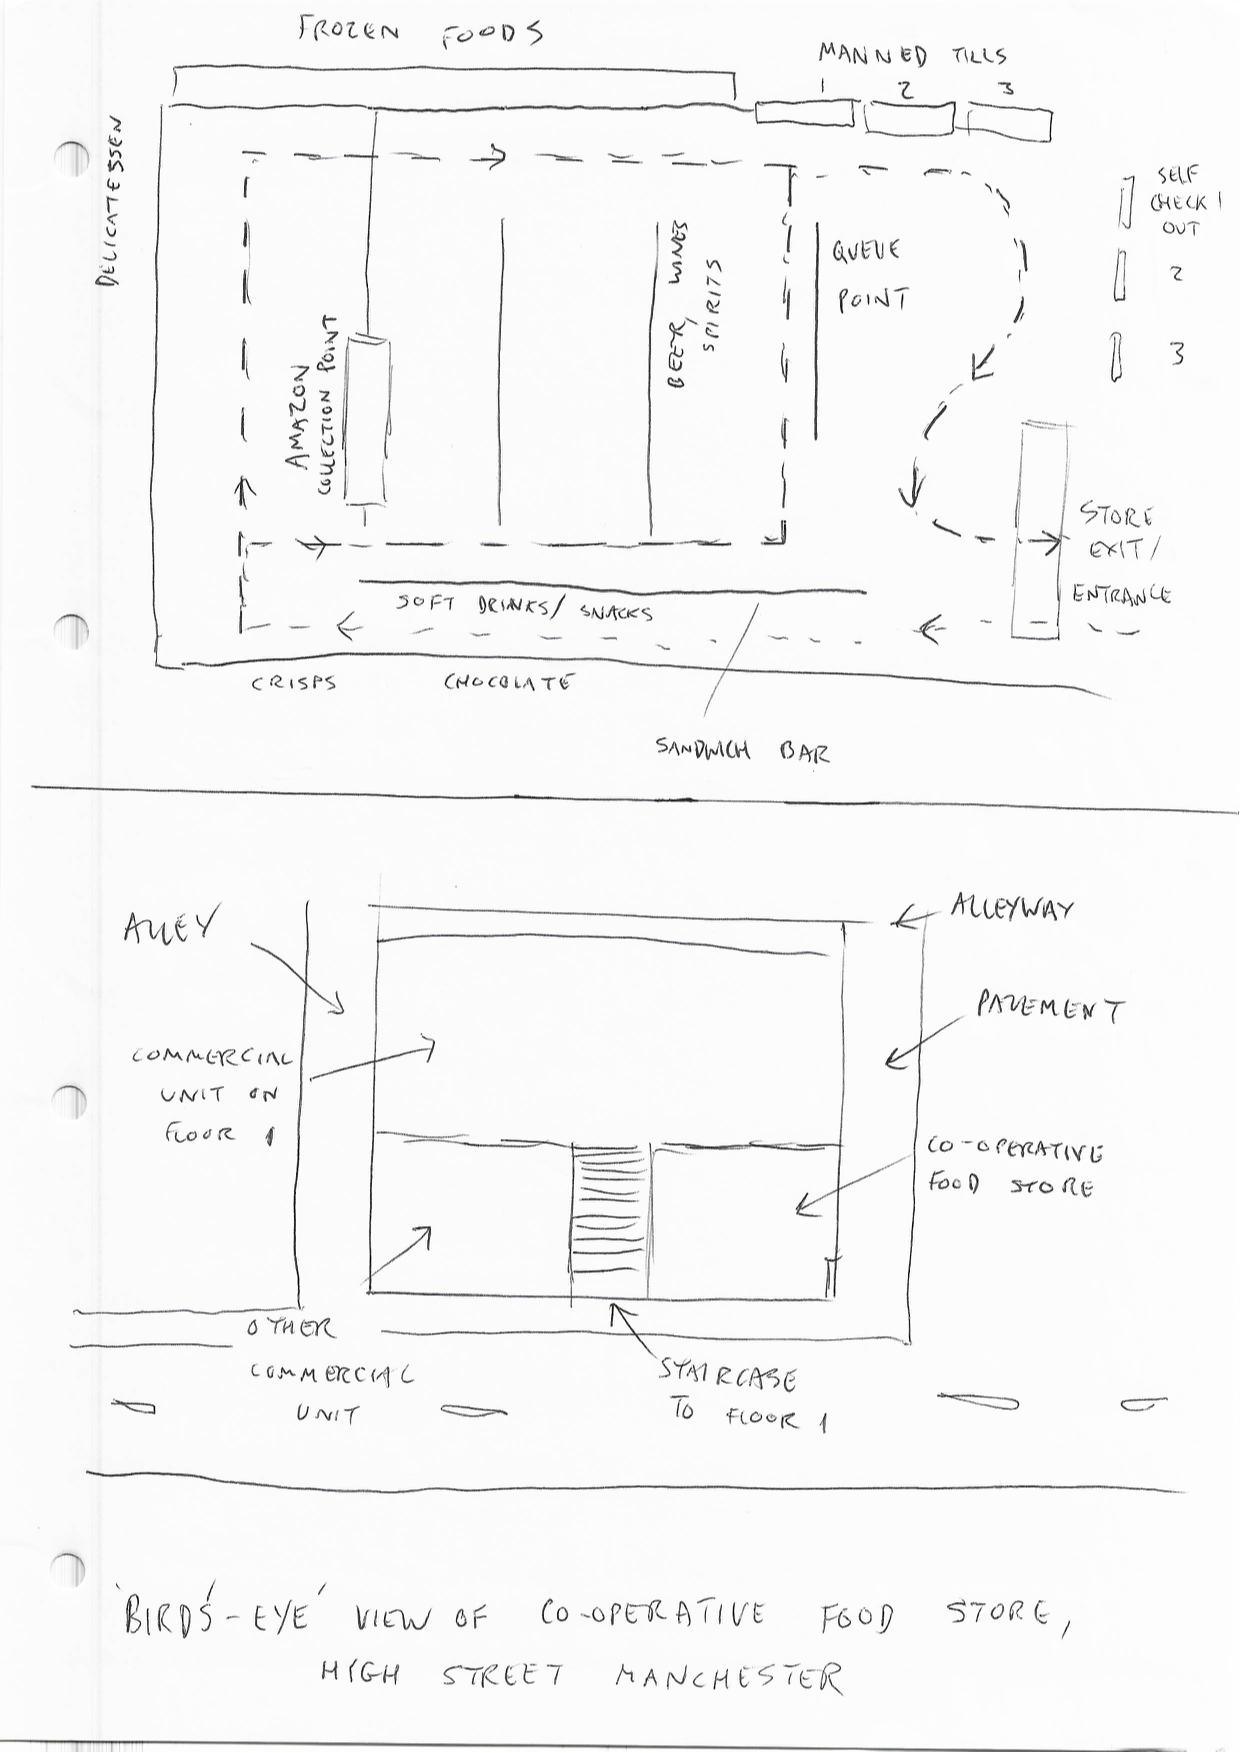 FROZEN FOODS
MANNED TILLS
1 2 3
DELICATESSEN
SELF
CHECK 1
OUT
2
3
QUEUE
POINT
BEER, WINES
SPIRITS
AMAZON
COLLECTION POINT
STORE
EXIT/
ENTRANCE
SOFT DRINKS/ SNACKS
CRISPS CHOCOLATE
SANDWICH BAR
ALLEY
ALLEYWAY
PAVEMENT
COMMERCIAL
UNIT ON
FLOOR 1
CO-OPERATIVE
FOOD STORE
OTHER
COMMERCIAL
UNIT
STAIRCASE
TO FLOOR 1
'BIRD'S-EYE' VIEW OF CO-OPERATIVE FOOD STORE,
HIGH STREET MANCHESTER